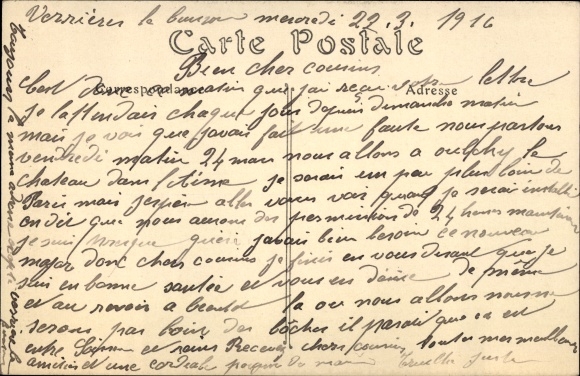 Verrières le buisson mercredi 22.3.1916
Carte Postale
Bien cher cousins
Correspondance
Adresse
Cest ce matin que jai reçu votre lettre
je lattendais chaque jour depuis dimanche matin
mais je vois que javais fait une faute nous partons
vendredi matin 24 mars nous allons a oulchy le
chateau dans l'aisne je serais un peu plus loin de
Paris mais jespere aller vous voir quand je serai installé
on dit que nous aurons des permissions de 24 heures
je suis presque guéri javais bien besoin ce nouveau
major donc chers cousins je finis en vous disant que je
suis en bonne santée et vous en désire de même
et au revoir a bientot la ou nous allons nous ne
serons pas loin des boches il parait que ca est
entre Soissons et reims Recevez chers cousins toutes mes meilleures
amitiés et une cordiale poignée de main
toujours la meme adresse